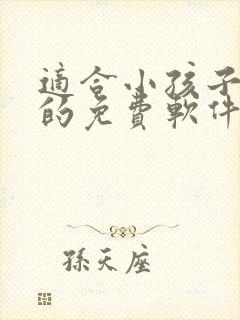 適合小孩子
的免費軟件
孫天座